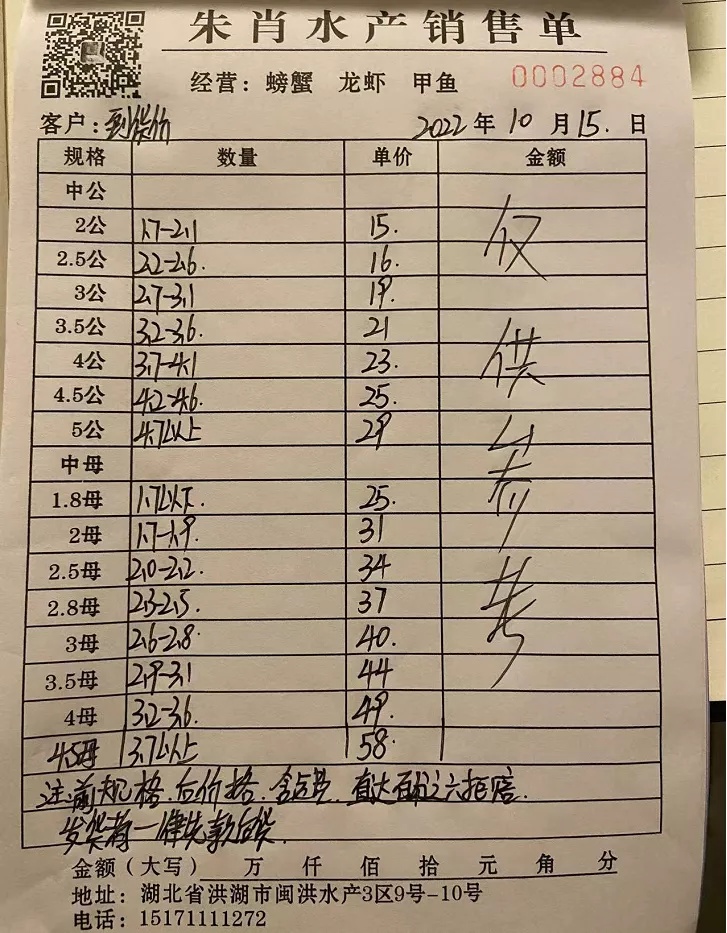 朱肖水产销售单
经营：螃蟹 龙虾 甲鱼 0002884
客户：到货价 2022年10月15.日
规格 数量 单价 金额
中公
2公 1.7-2.1 15.
2.5公 2.2-2.6. 16.
3公 2.7-3.1 19.
3.5公 3.2-3.6. 21
4公 3.7-4.1 23.
4.5公 4.2-4.6. 25.
5公 4.7以上 29
中母
1.8母 1.7以下. 25.
2母 1.7-1.9. 31
2.5母 2.0-2.2. 34
2.8母 2.3-2.5. 37
3母 2.6-2.8. 40.
3.5母 2.9-3.1 44
4母 3.2-3.6. 49.
4.5母 3.7以上 58.
仅供参考
注:前规格.后价格.含 直达百分之六拒赔.
发货前一律先款后货.
金额（大写） 万 仟 佰 拾 元 角 分
地址：湖北省洪湖市闽洪水产3区9号-10号
电话：15171111272